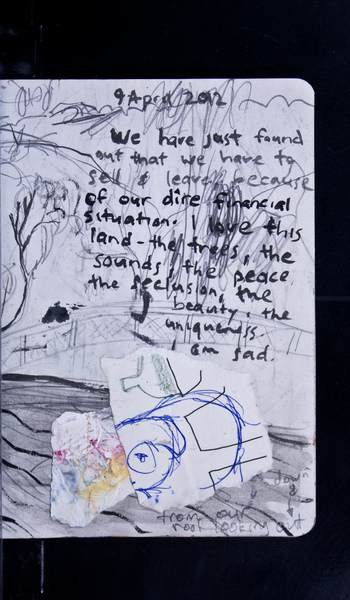 9 April 2012
We have just found
out that we have to
sell & leave because
of our dire financial
situation. I love this
land - the trees, the
sounds, the peace,
the seclusion, the
beauty, the
uniqueness.
I am sad.
down
from our
roof looking out